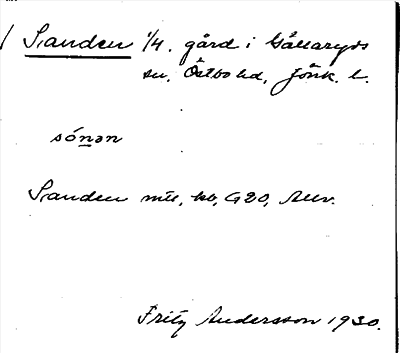 Sanden 1/4. gård i Gällaryds
sn, Östbo hd, Jönk. l.
sónən
Sanden mtl, kb, G20, Anv.
Fritz Andersson 1930.